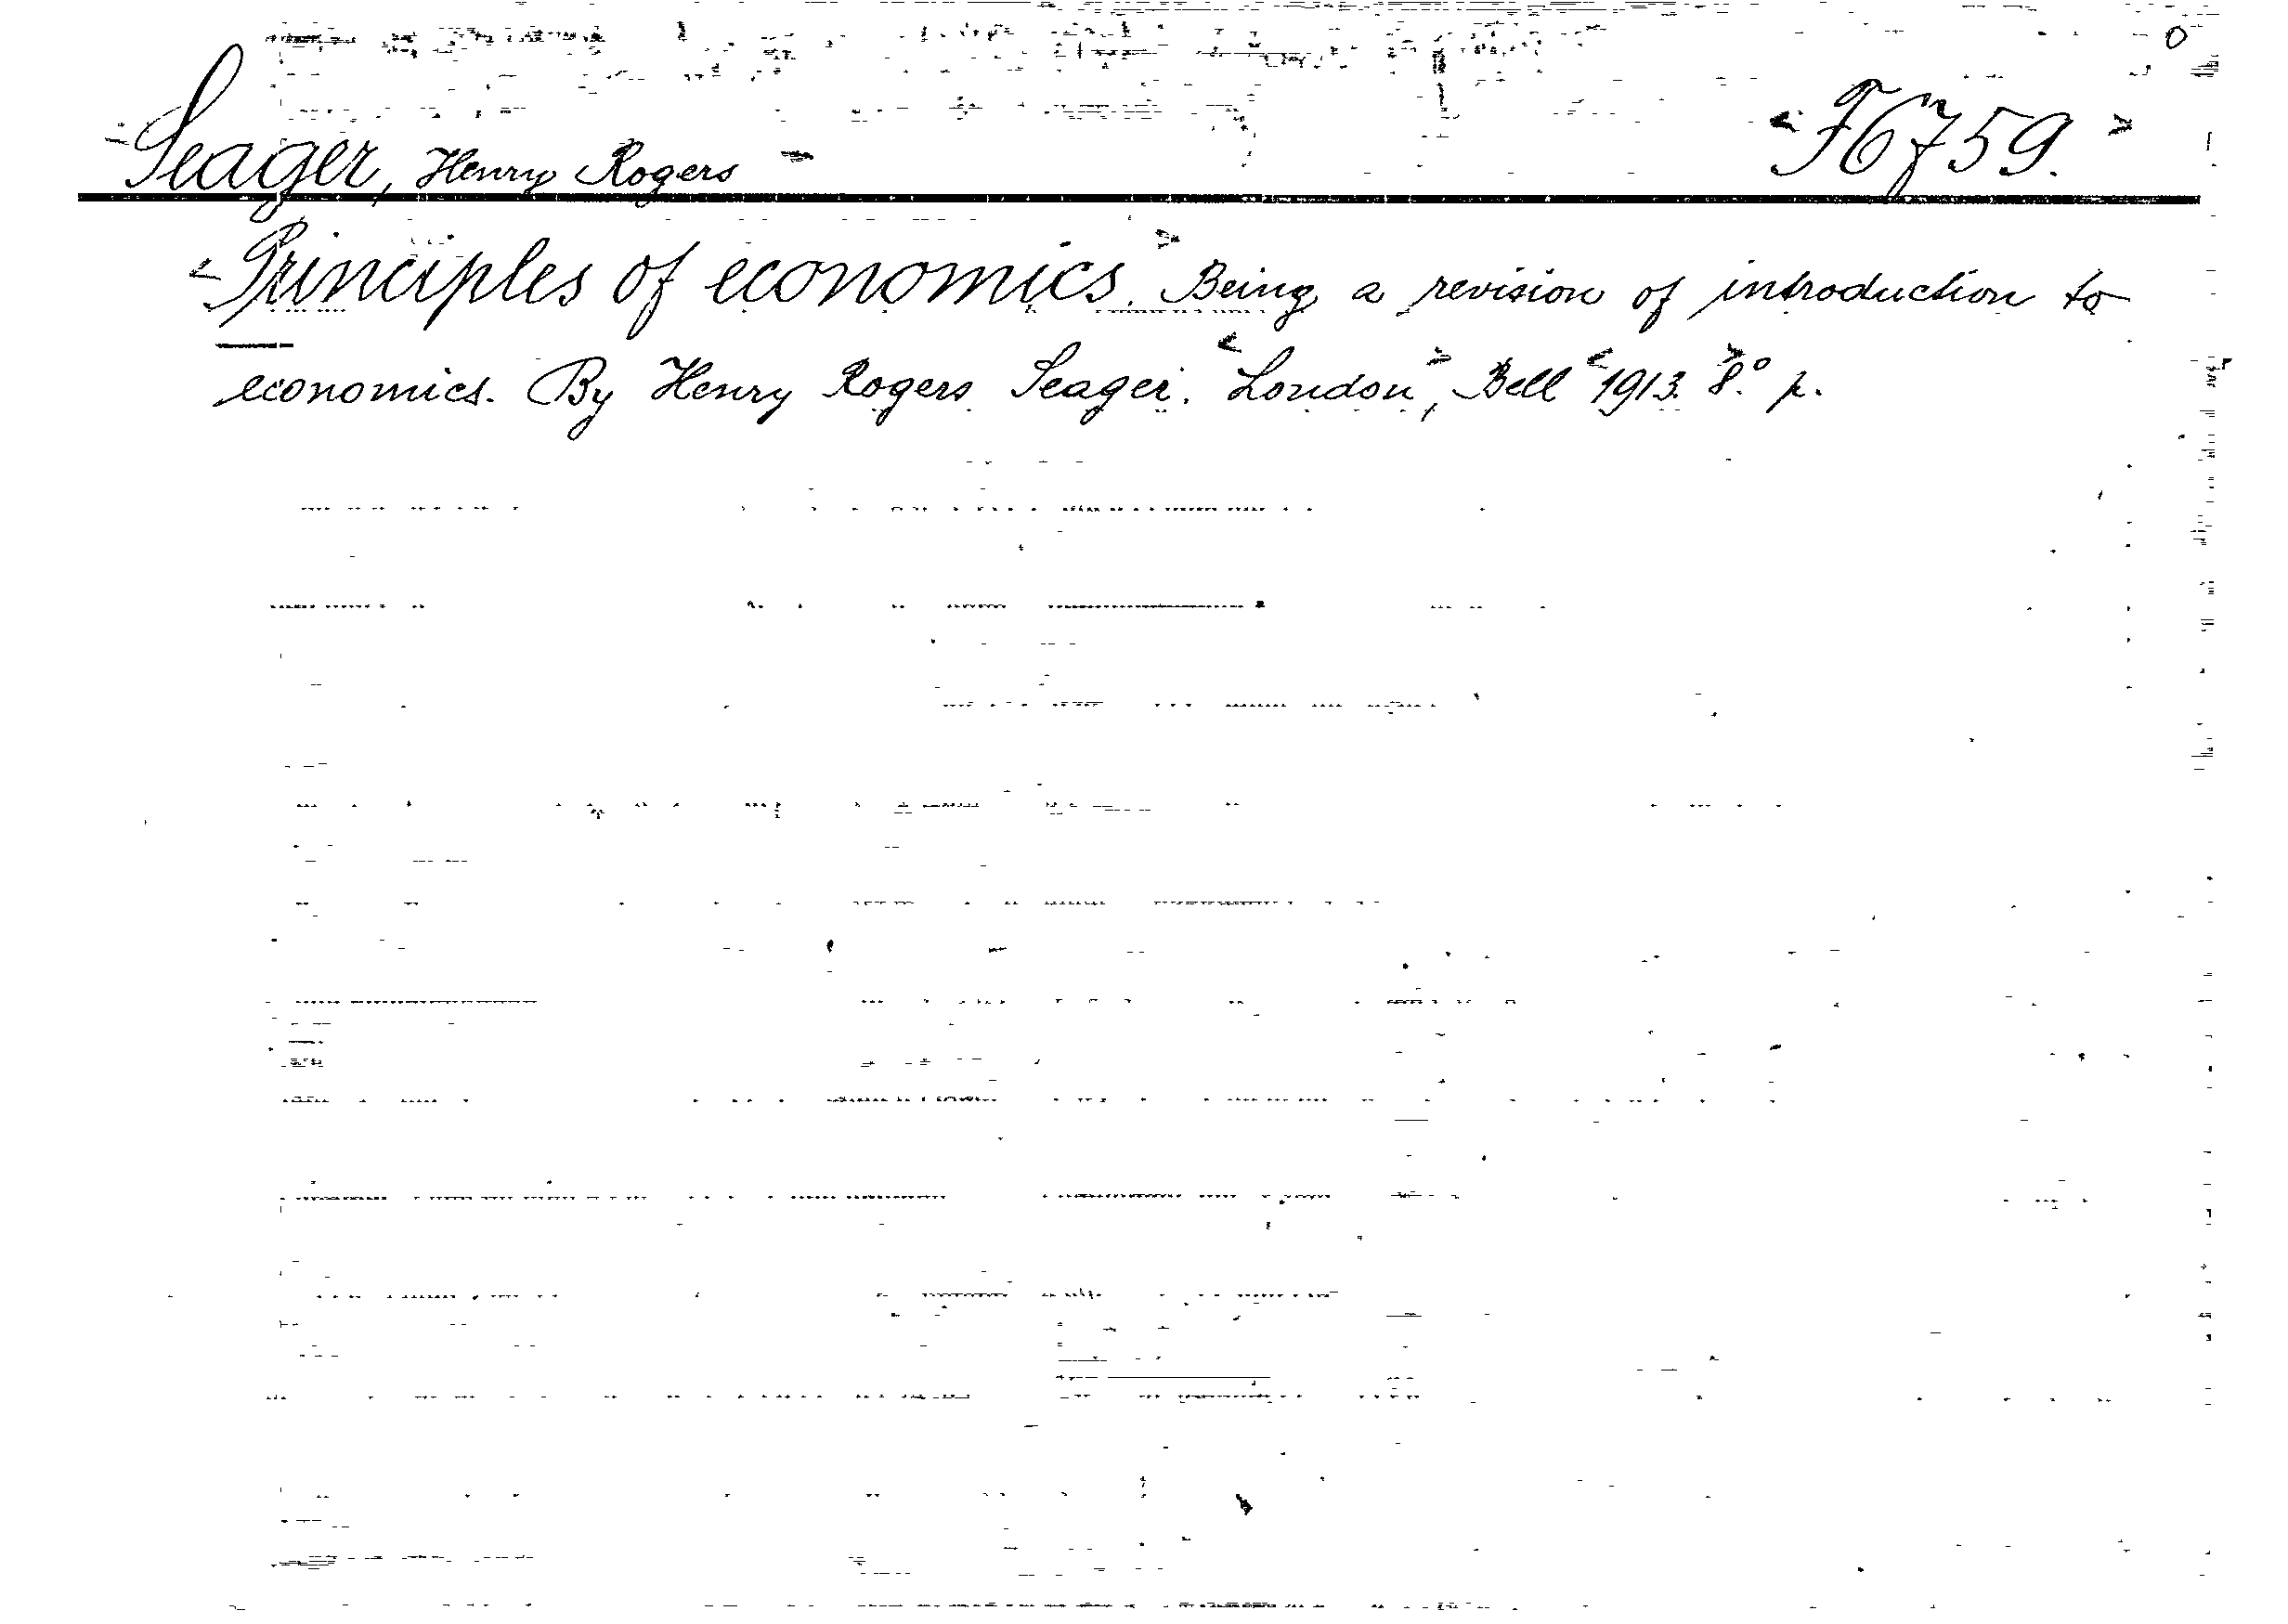 <Seager, Henry Rogers> <F6759.>
<Principles of economics.> Being a revision of introduction to
economics. By Henry Rogers Seager. <London>, Bell <1913.> 8.° p.